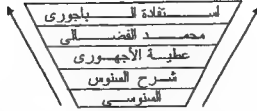 استفادة الباجورى
محمد الفضالى
عطية الأجهورى
شرح السنوس
السنوسى